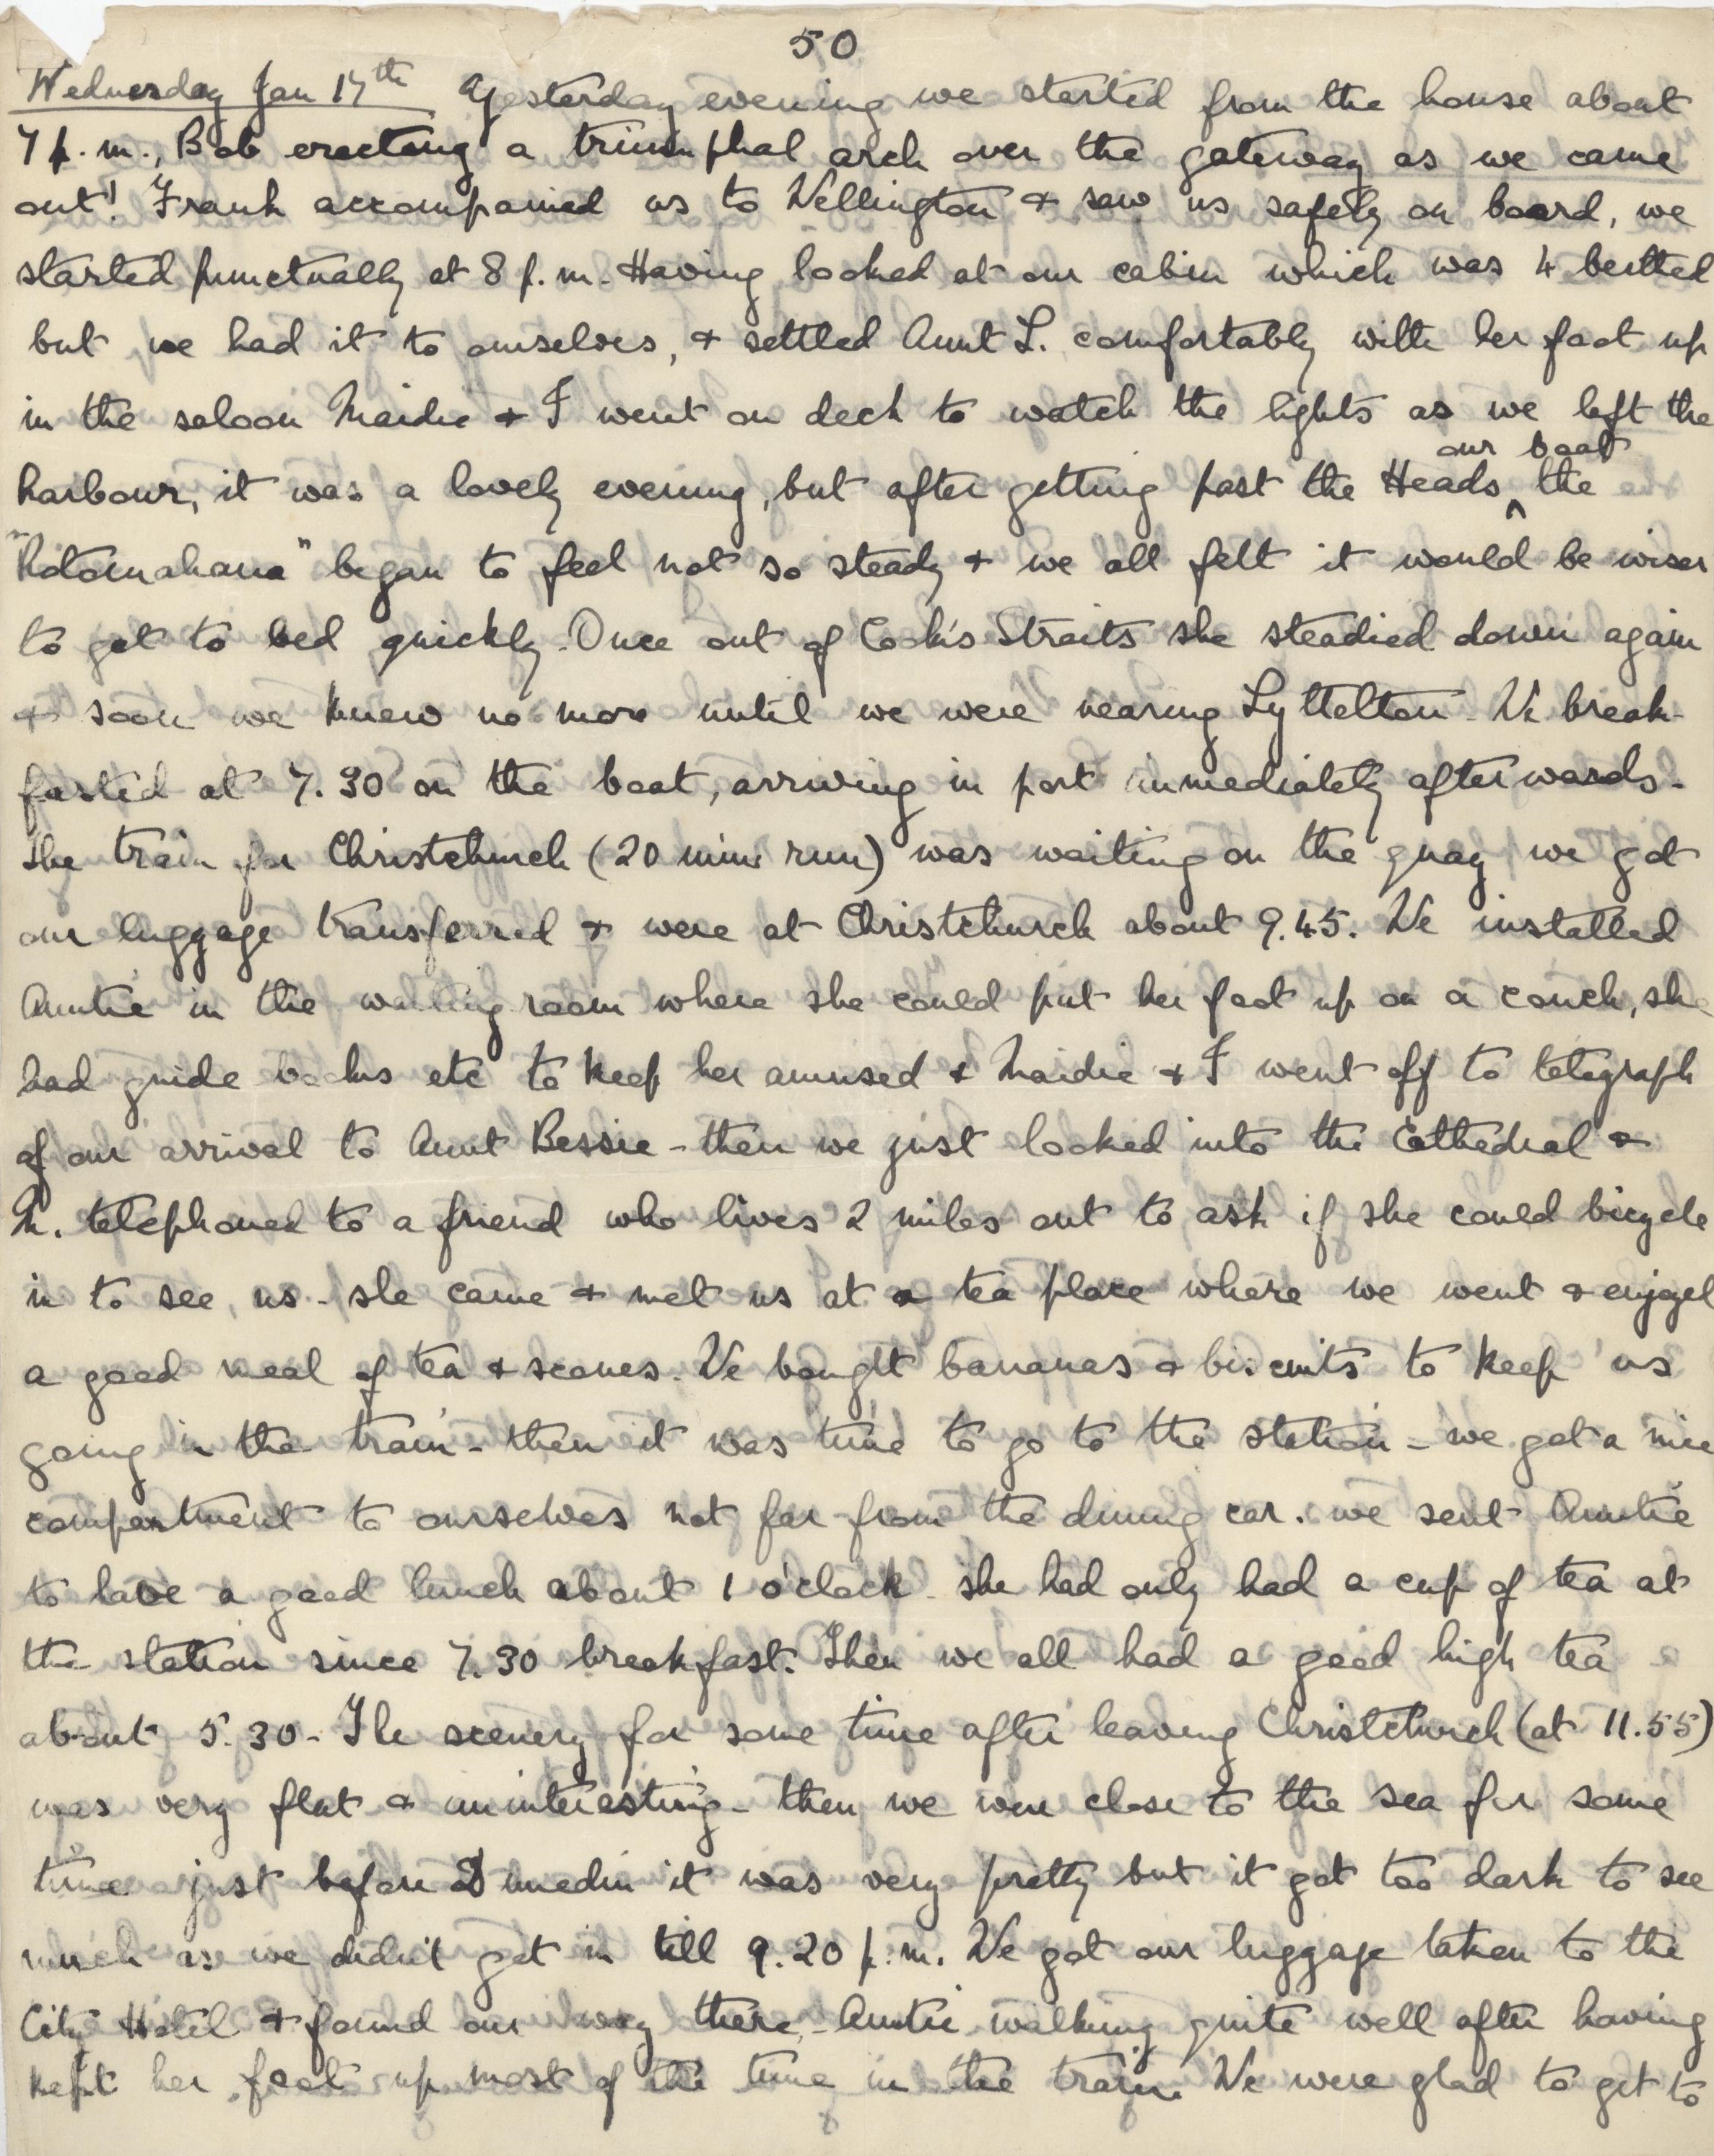 50
Wednesday Jan 17th Yesterday evening we started from the house about
7 p.m., Bob erecting a triumphal arch over the gateway as we came
out! Frank accompanied us to Wellington & saw us safely on board, we
started punctually at 8 p.m. Having looked at our cabin which was 4 berthed
but we had it to ourselves, & settled Aunt L. comfortably with her foot up
in the saloon Maidie & I went on deck to watch the lights as we left the
our boat
harbour, it was a lovely evening, but after getting past the Heads ^ the
"Rotomahana" began to feel not so steady & we all felt it would be wiser
to get to bed quickly. Once out of Cook's Straits she steadied down again
& soon we knew no more until we were nearing Lyttelton. We break-
fasted at 7.30 on the boat, arriving in port immediately afterwards.
The train for Christchurch (20 mins run) was waiting on the quay, we got
our luggage transferred & were at Christchurch about 9.45. We installed
Auntie in the waiting room where she could put her foot up on a couch, she
had guide books etc to keep her amused & Maidie & I went off to telegraph
of our arrival to Aunt Bessie - then we just looked into the Cathedral &
M. telephoned to a friend who lives 2 miles out to ask if she could bicycle
in to see us - she came & met us at a tea place where we went & enjoyed
a good meal of tea & scones. We bought bananas & biscuits to keep us
going in the train - then it was time to go to the station - we got a nice
compartment to ourselves not far from the dining car. We sent Auntie
to have a good lunch about 1 o'clock - she had only had a cup of tea at
the station since 7.30 breakfast. Then we all had a good high tea
about 5.30 - The scenery for some time after leaving Christchurch (at 11.55)
was very flat & uninteresting - then we were close to the sea for some
time just before Dunedin it was very pretty but it got too dark to see
much as we didn't get in till 9.20 p.m. We got our luggage taken to the
City Hotel & found our way there - Auntie walking quite well after having
kept her foot up most of the time in the train. We were glad to get to